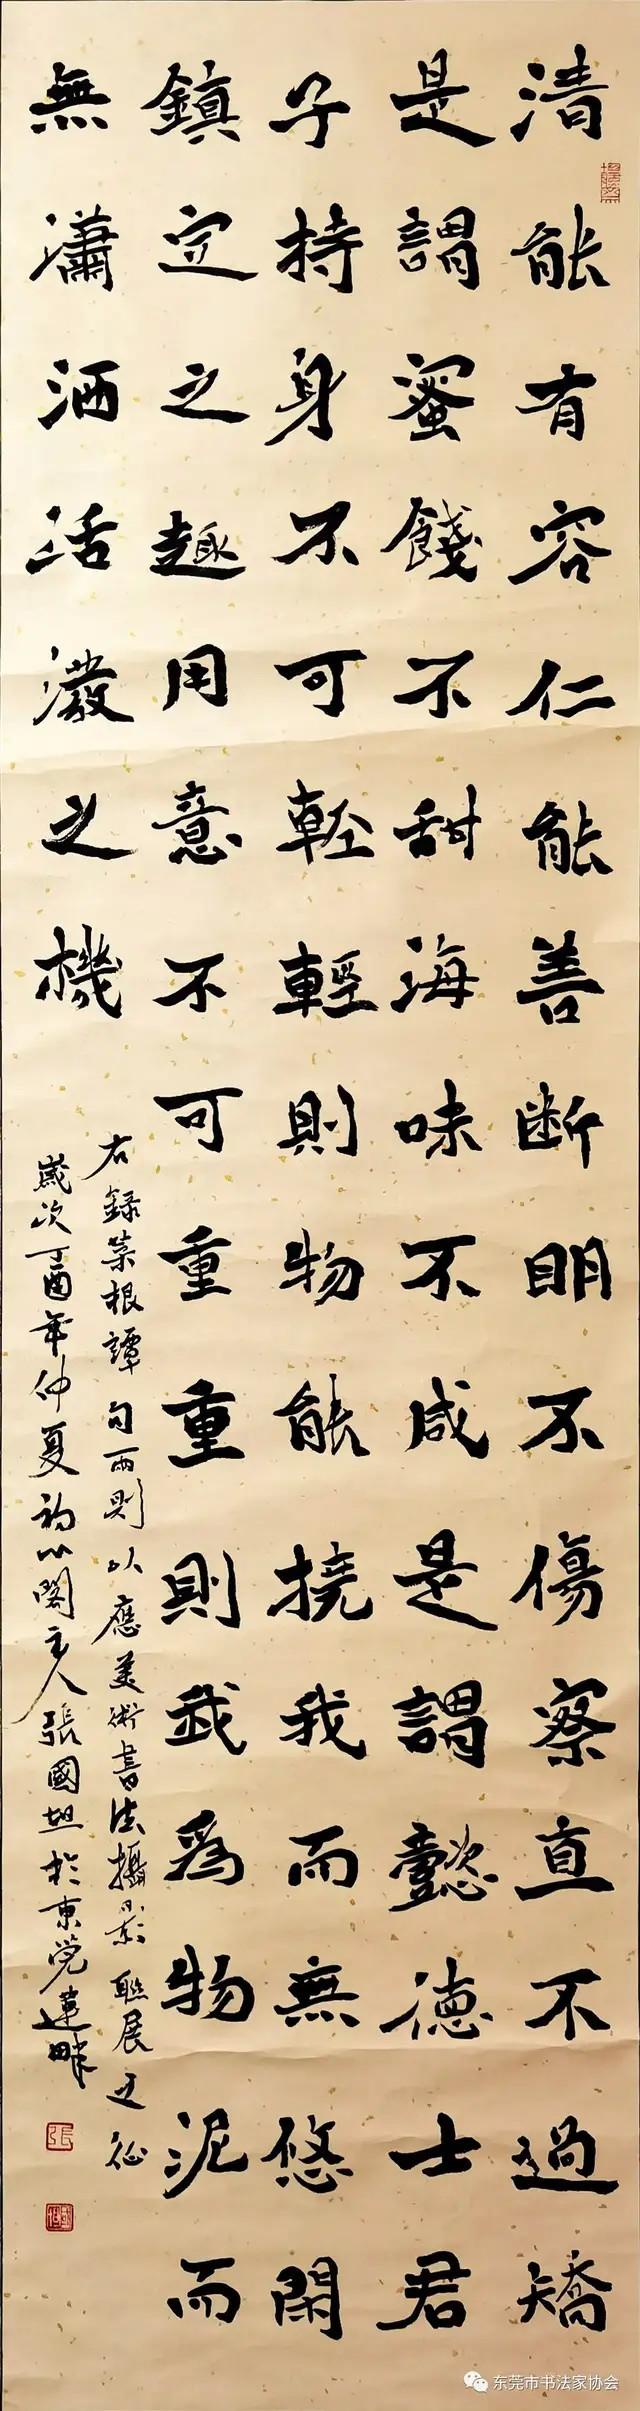 清能有容仁能善断明不傷察直不過矯
是謂蜜餞不甜海味不咸是謂懿德士君
子持身不可輕輕則物能撓我而無悠閑
鎮定之趣用意不可重重則我爲物泥而
無瀟洒活潑之機
右録菜根譚句兩則以應美術書法攝影聯展之征
歲次丁酉年仲夏閣主人張國坦於東莞蓮畔
張
东莞市书法家协会